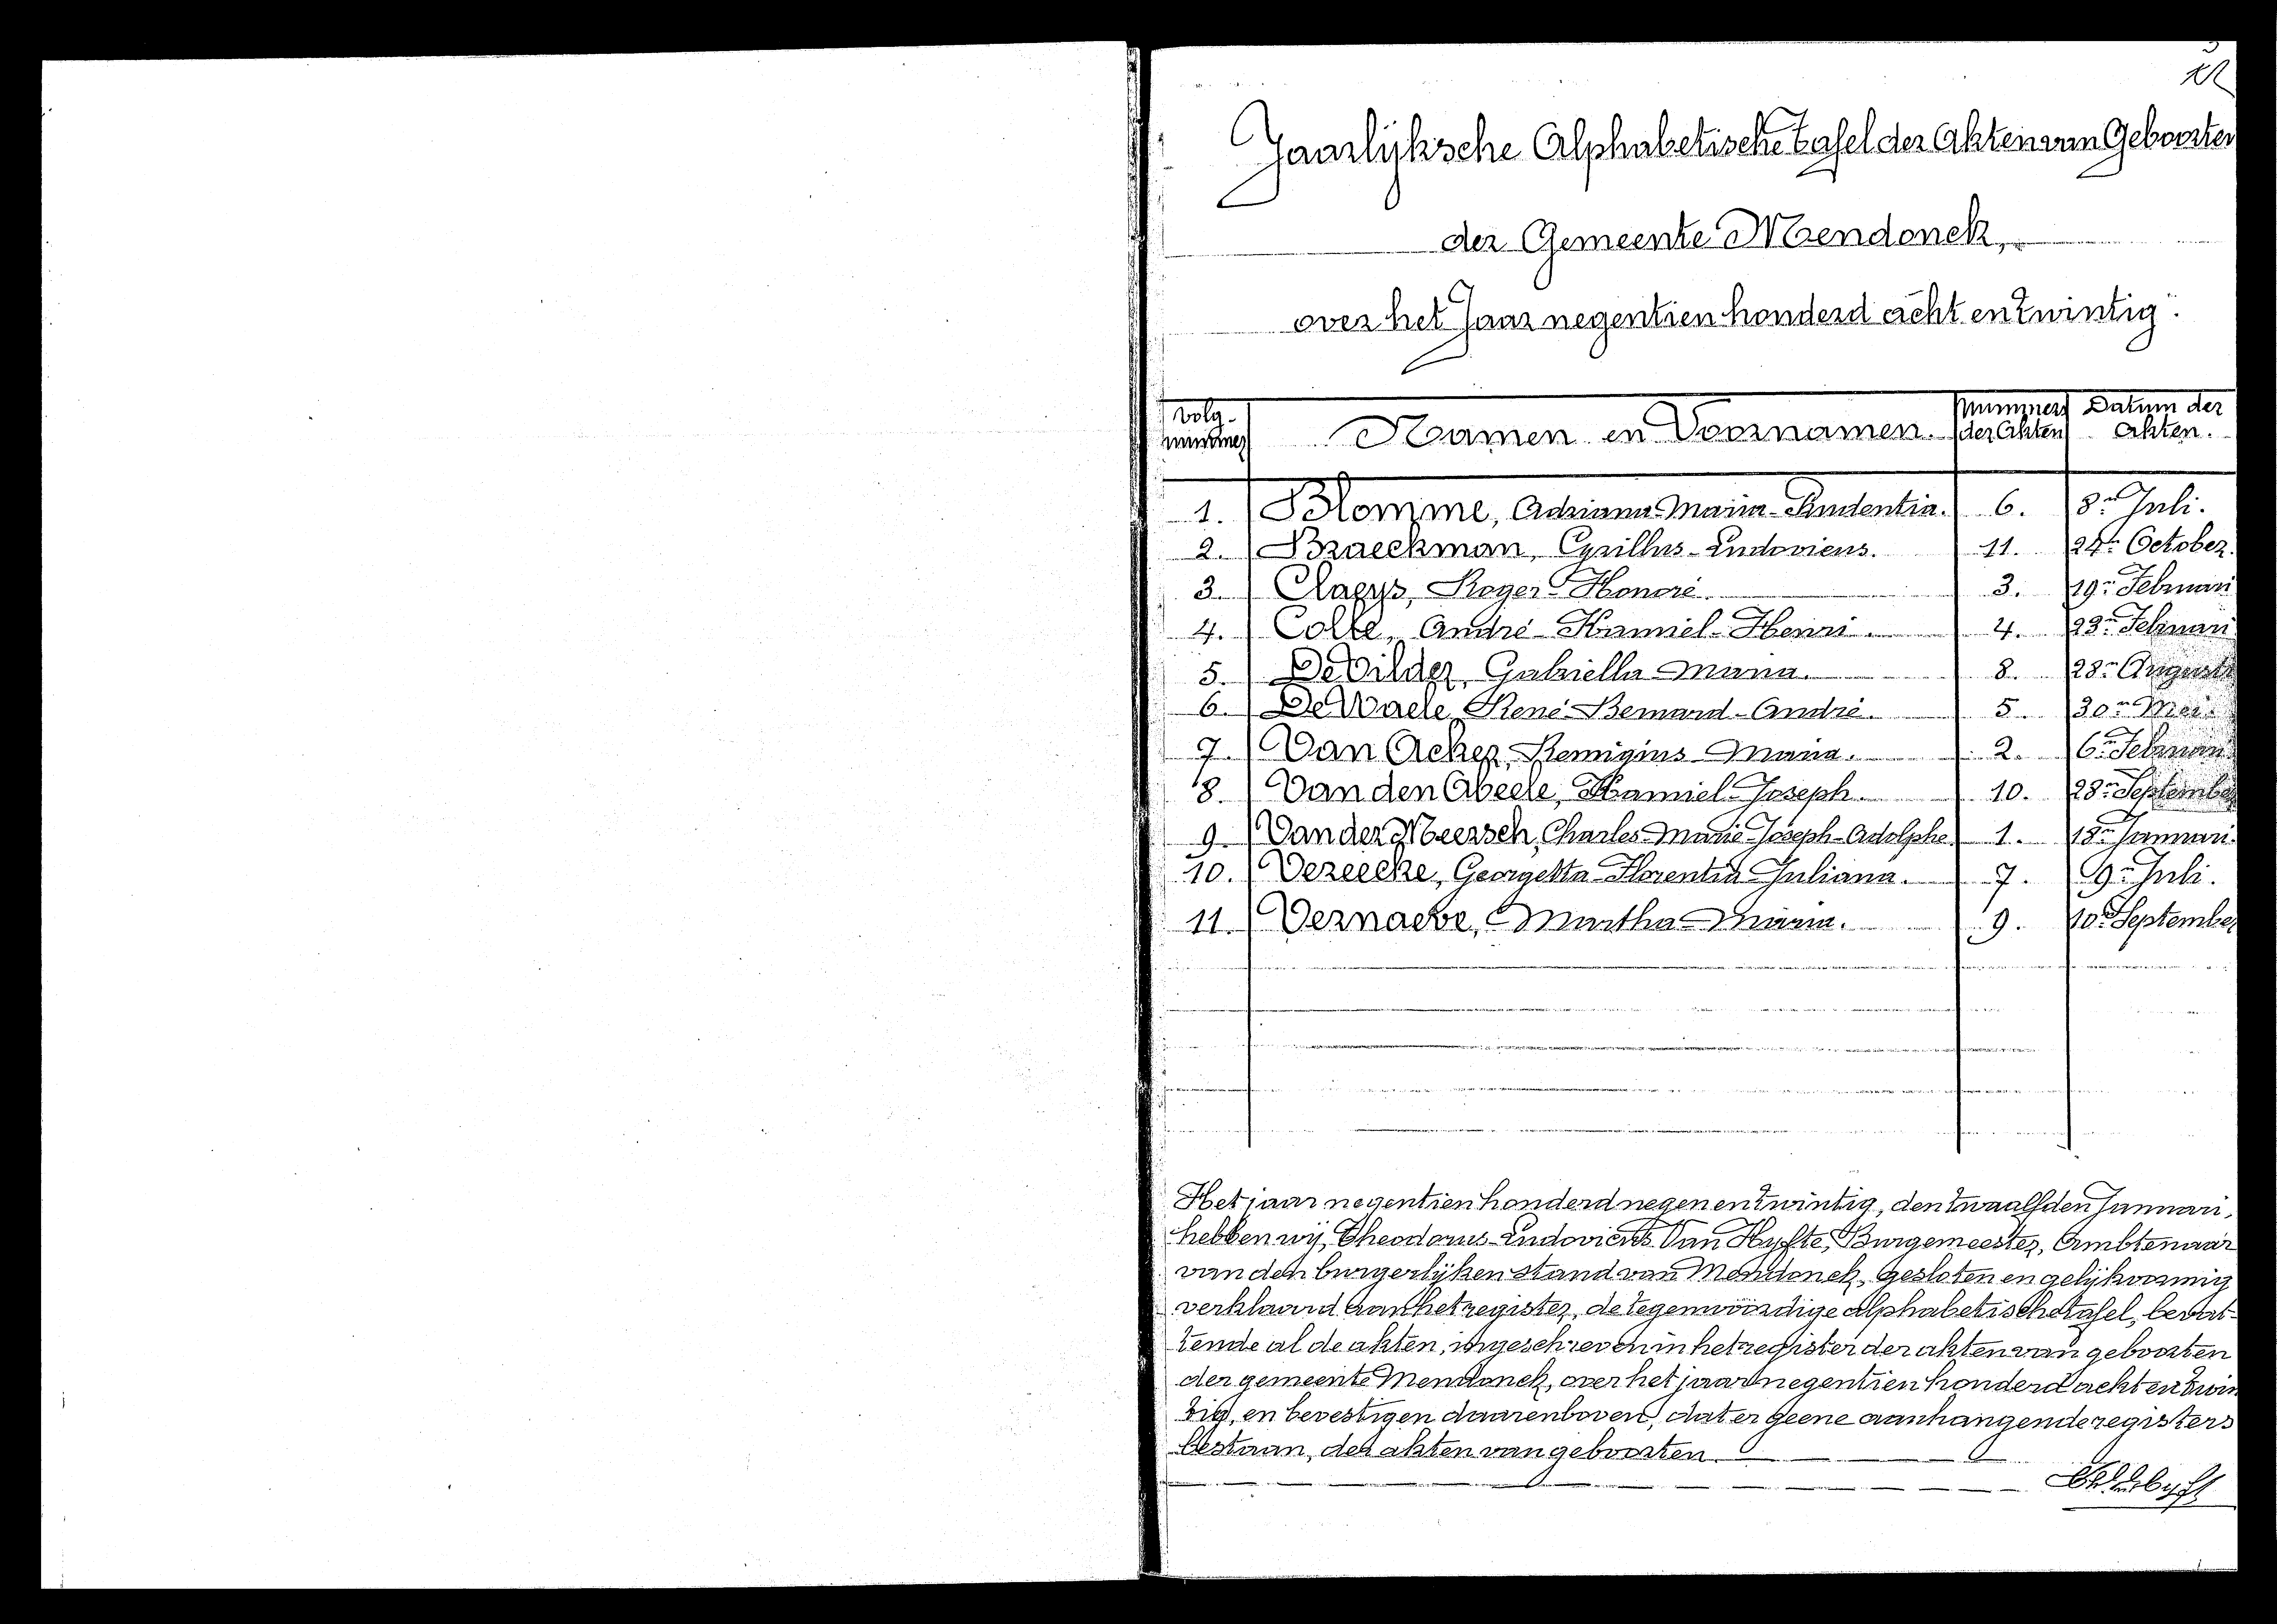 Jaarlijksche Alphabetische tafel der Akten van Geboorten
der Gemeente Mendonck,
over het Jaar negentien honderd acht en twintig.
Volg nummers Namen en Voornamen. Nummers der Akten Datum der akten.
1. Blomme, Adriana-Maria-Prudentia. 6. 8n Juli.
2. Braeckman, Cyrillus-Ludovicus. 11. 24n October.
3. Claeys, Roger-Honoré. 3. 19n Februari
4. Colle, André-Kamiel-Henri. 4. 23n Februari
5. De Vilder, Gabriella-Maria. 8. 28n Augusti
6. De Waele, René-Bernard-André. 5. 30n Mei.
7. Van Acker, Remigius-Maria. 2. 6n Februari
8. Van den Abeele, Kamiel-Joseph. 10. 28n September
9. Van der Meersch, Charles-Marie-Joseph-Adolphe. 1. 18n Januari.
10. Vereecke, Georgetta-Florentia-Juliana. 7. 9n Juli.
11. Vernaeve, Martha-Maria. 9. 10n September
Het jaar negentien honderd negen en twintig, den twaalfden Januari,
hebben wij, Theodorus-Ludovicus Van Hyfte, Burgemeester, Ambtenaar
van den burgerlijken stand van Mendonck, gesloten en gelijkvormig
verklaard aan het register, de tegenwoordige alphabetische tafel, bevat-
tende al de akten, ingeschreven in het register der akten van geboorten
der gemeente Mendonck, over het jaar negentien honderd acht en twin
tig, en bevestigen daarenboven, dat er geene aanhangende registers
bestaan, der akten van geboorten.